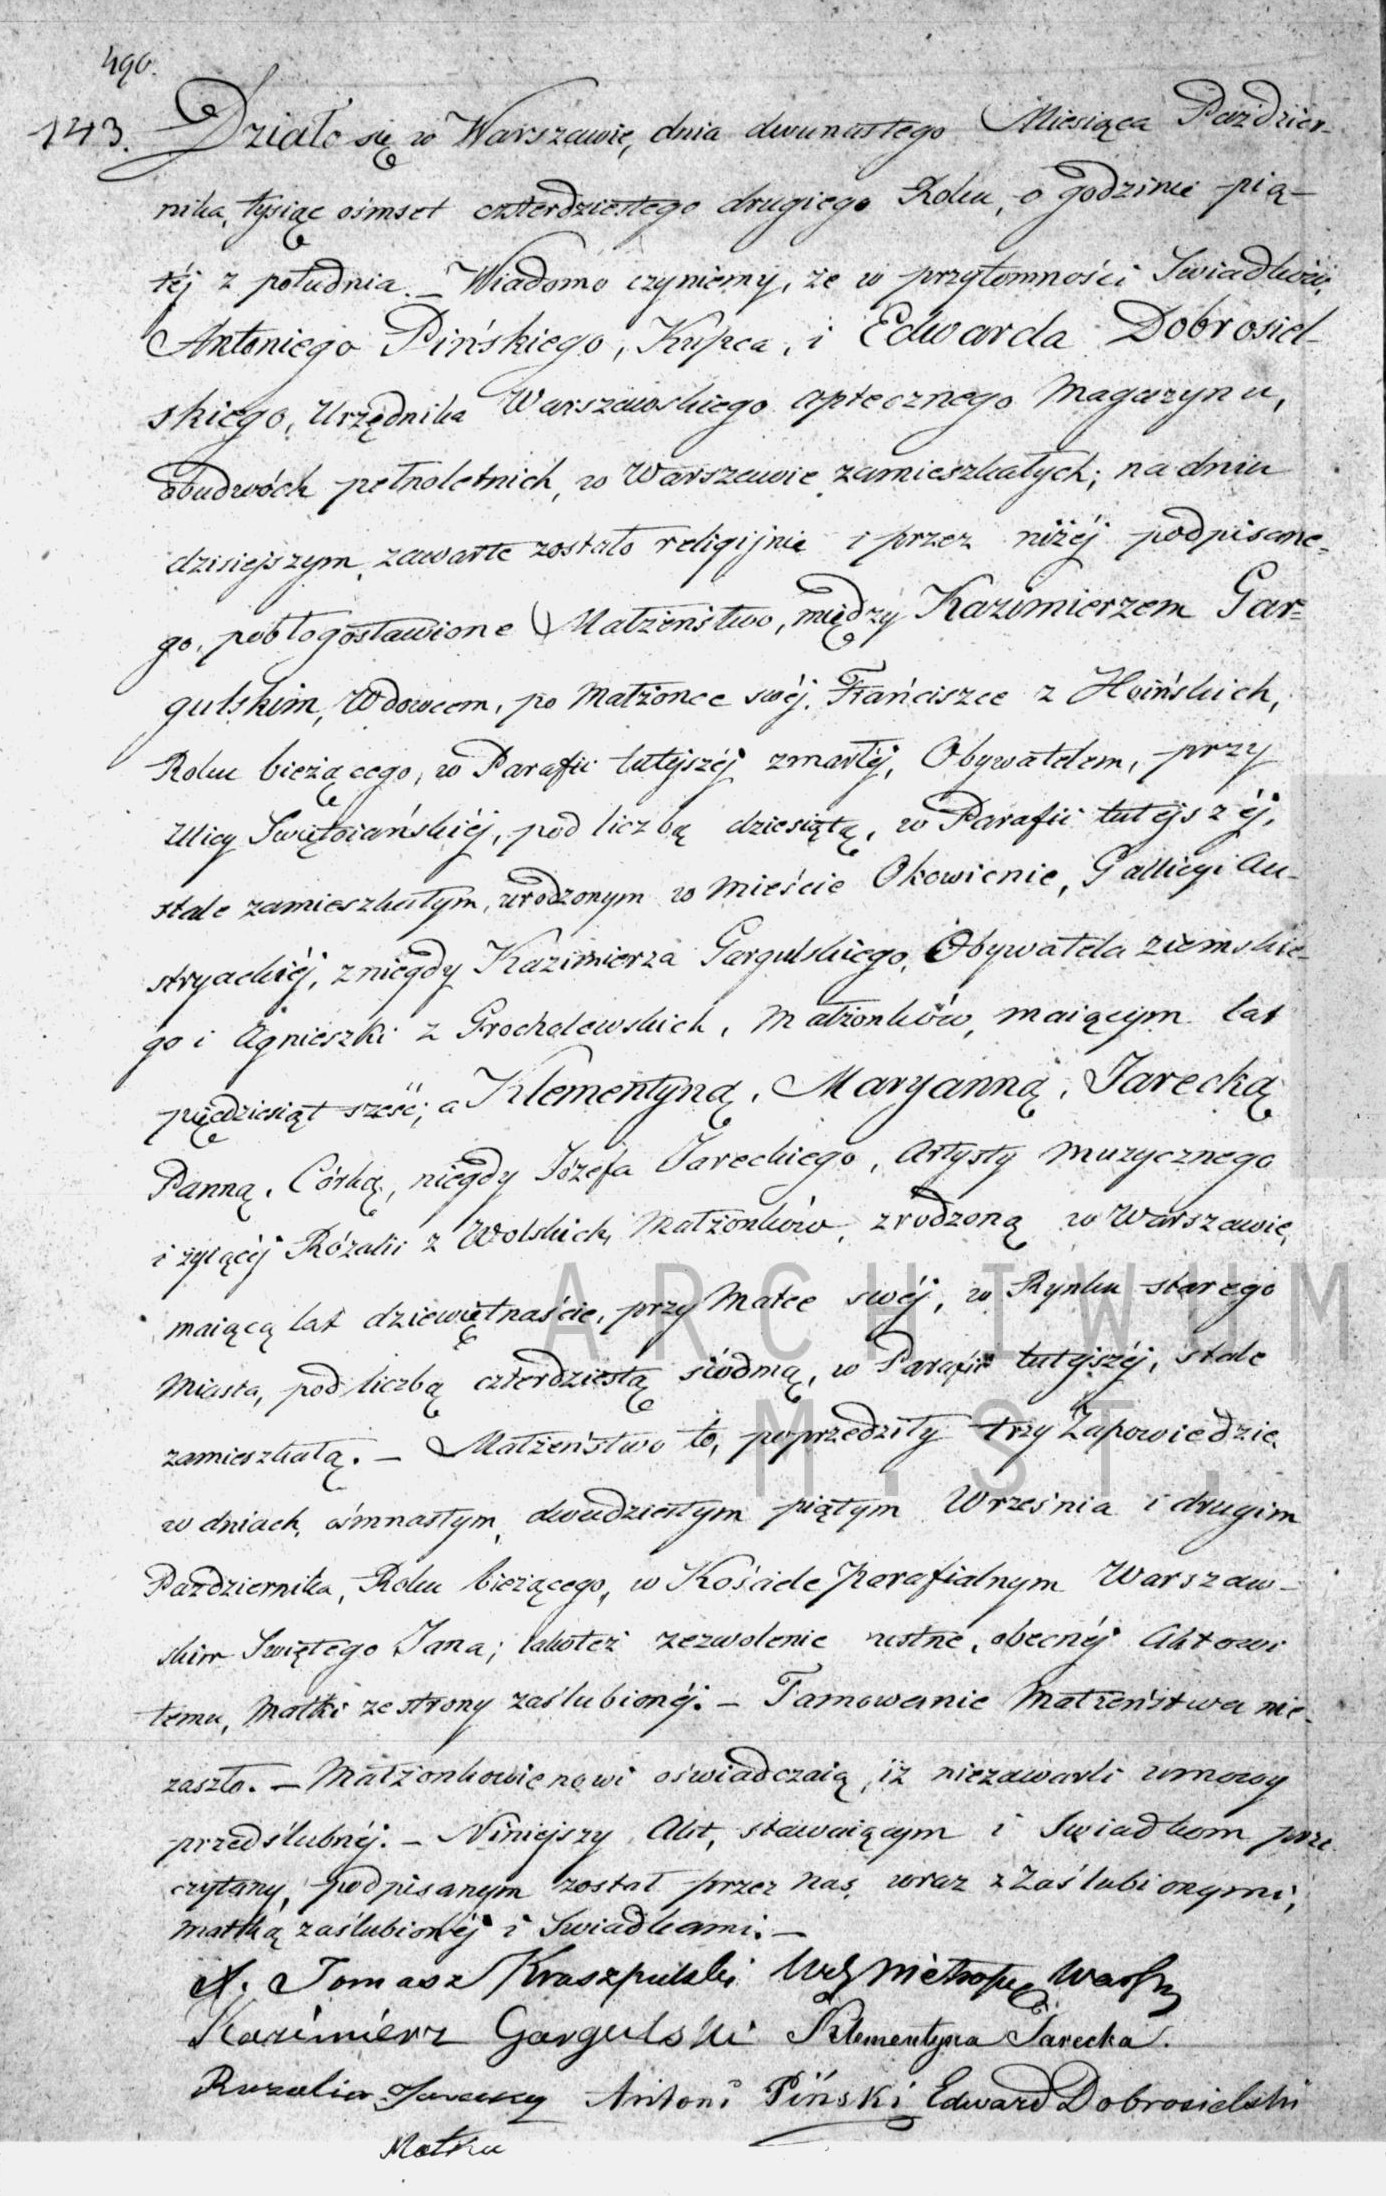 496.
143. Działo się w Warszawie, dnia dwunastego Miesiąca Paździer-
nika, tysiąc ośmset czterdziestego drugiego Roku, o godzinie pią-
téj z południa. – Wiadomo czyniemy, że w przytomności Swiadków,
Antoniego Pińskiego, Kupca, i Edwarda Dobrosiel-
skiego, Urzędnika Warszawskiego aptecznego Magazynu,
obudwóch pełnoletnich, w Warszawie zamieszkałych; na dniu
dzisiejszym, zawarte zostało religijnie i przez niżéj podpisane-
go, pobłogosławione Małżeństwo, między Kazimierzem Gar-
gulskim, Wdowcem, po Małżonce swéj, Frańciszce z Hoińskich,
Roku bieżącego, w Parafii tutejszéj zmarłéj, Obywatelem, przy
Ulicy Swiętoiańskiéj, pod liczbą dziesiątą, w Parafii tutejszéj,
stale zamieszkałym, urodzonym w Mieście Okowienie, Gallicyi Au-
stryackiéj, z niegdy Kazimierza Gargulskiego, Obywatela ziemskie-
go i Agnieszki z Grocholewskich, Małżonków, maiącym lat
pięćdziesiąt sześć; a Klementyną, Maryanną, Jarecką
Panną, Córką, niegdy Józefa Jareckiego, Artysty Muzycznego
i żyiącéj Rózalii z Wolskich, Małżonków, zrodzoną w Warszawie,
maiącą lat dziewiętnaście, przy Matce swéj, w Rynku starego
Miasta, pod liczbą czterdziestą siódmą, w Parafii tutejszéj, stale
zamieszkałą. – Małżeństwo to, poprzedziły trzy Zapowiedzie,
w dniach, ośmnastym, dwudziestym piątym Września i drugim
Października, Roku bieżącego, w Kościele Parafialnym Warszaw-
skim Swiętego Jana; takoteż zezwolenie ustne, obecnéj Aktowi
temu, Matki ze strony zaślubionéj. – Tamowanie Małżeństwa nie-
zaszło. – Małżonkowie nowi oświadczaią, iż niezawarli umowy
przedślubnéj. – Niniejszy Akt, stawaiącym i Swiadkom prze
czytany, podpisanym został przez nas, wraz z Zaślubionymi,
Matką zaślubionéj i Swiadkami. –
X. Tomasz Kraszpulski
Kazimierz Gargulski Klementyna Jarecka.
Ruzalia Jarecky Antoni Piński Edward Dobrosielski
Matka
ARCHIWUM
M. ST.